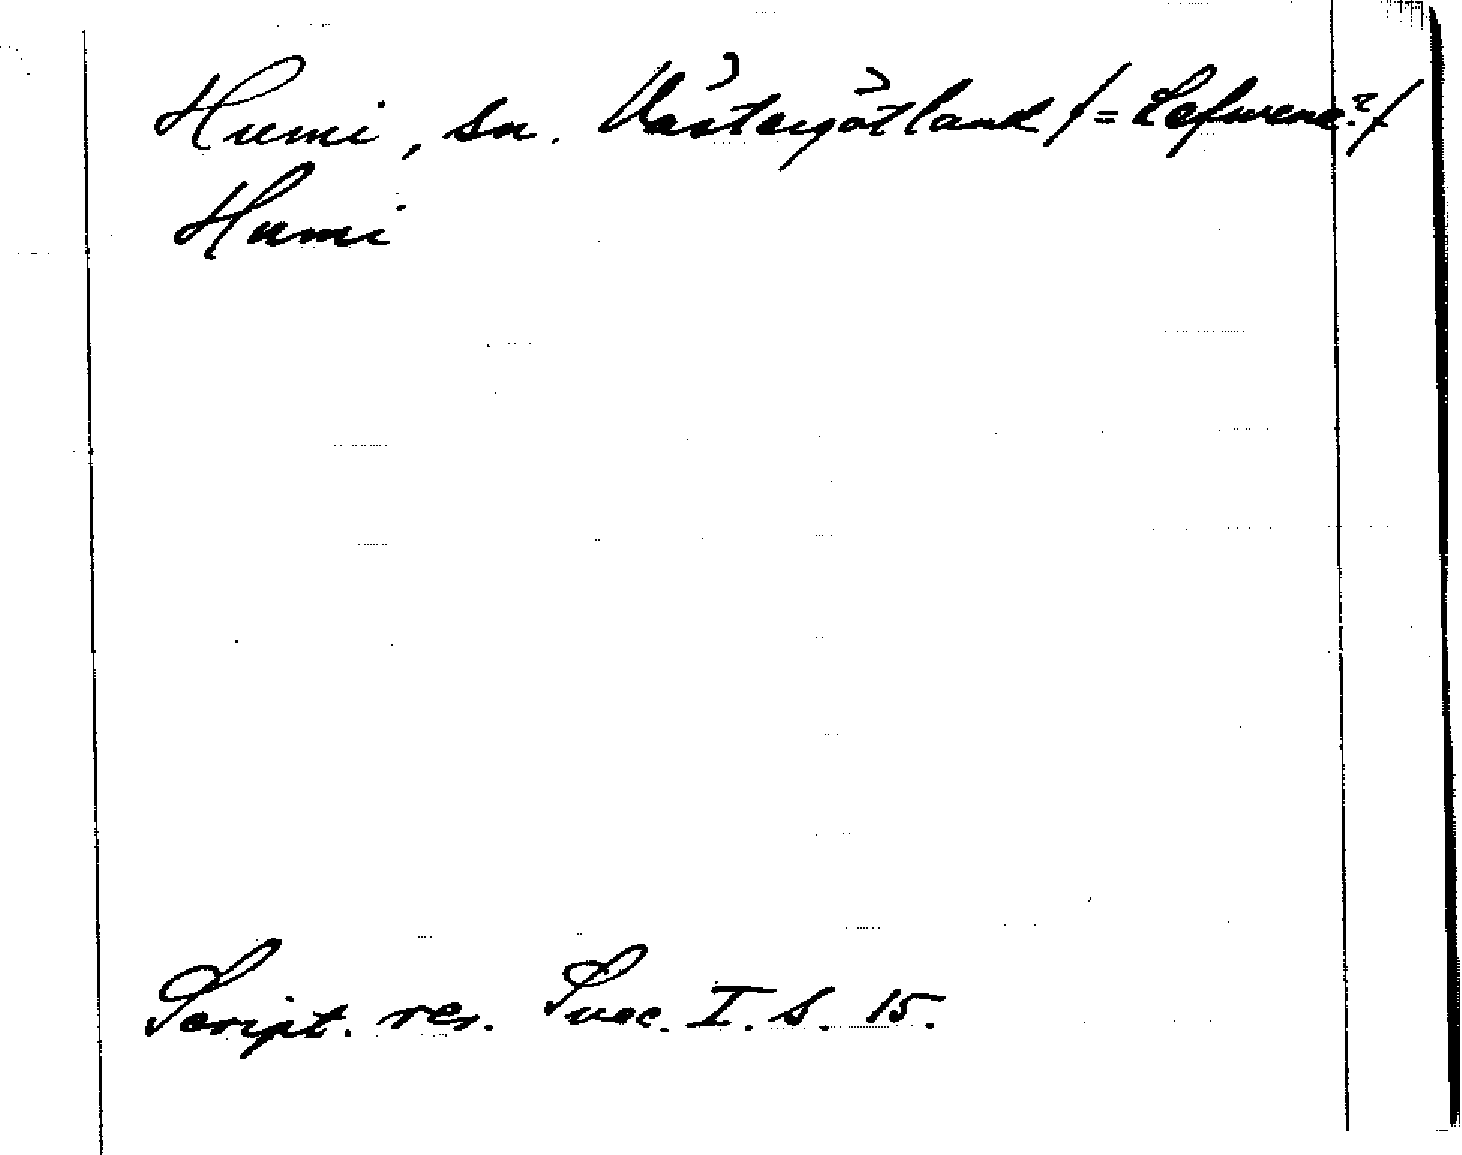 Humi, sn. Västergötland /= Lefwene?/
Humi
Script. rer. Svec. I. S. 15.